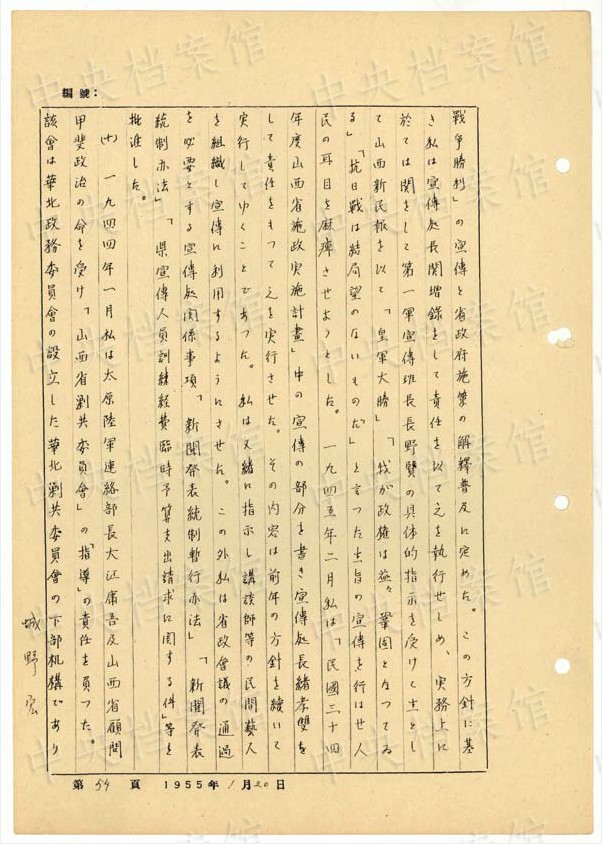 編號：
戰爭勝利」の宣傳と省政府施策の解釋普及に定めた。この方針に基
き私は宣傳処長関増録をして責任を以て之を執行せしめ、実務上に
於ては関をして第一軍宣傳班長長野賢の具体的指示を受けて主とし
て山西新民報を以て「皇軍大勝」「我が政権は益々鞏固となつてゐ
る」「抗日戰は結局望のないものだ」と言つた主旨の宣傳を行はせ人
民の耳目を麻痺させようとした。一九四五年二月私は「民國三十四
年度山西省施政実施計畫」中の宣傳の部分を書き宣傳処長緒孝雙を
して責任をもつて之を実行させた。その内容は前年の方針を續いて
実行してゆくことであつた。私は又緒に指示し講談師等の民間藝人
を組織し宣傳に利用するようにさせた。この外私は省政会議の通過
を必要とする宣傳処関係事項「新聞発表統制暫行弁法」「新聞発表
統制弁法」「県宣傳人員訓練経費臨時予算支出請求に関する件」等を
批准した。
(十) 一九四四年一月私は太原陸軍連絡部長大江庸吾及山西省顧問
甲斐政治の命を受け「山西省剿共委員会」の「指導」の責任を負つた。
該會は華北政務委員會の設立した華北剿共委員會の下部机構であり
城野宏
第 54 頁 1955年 1月20日
中央档案馆